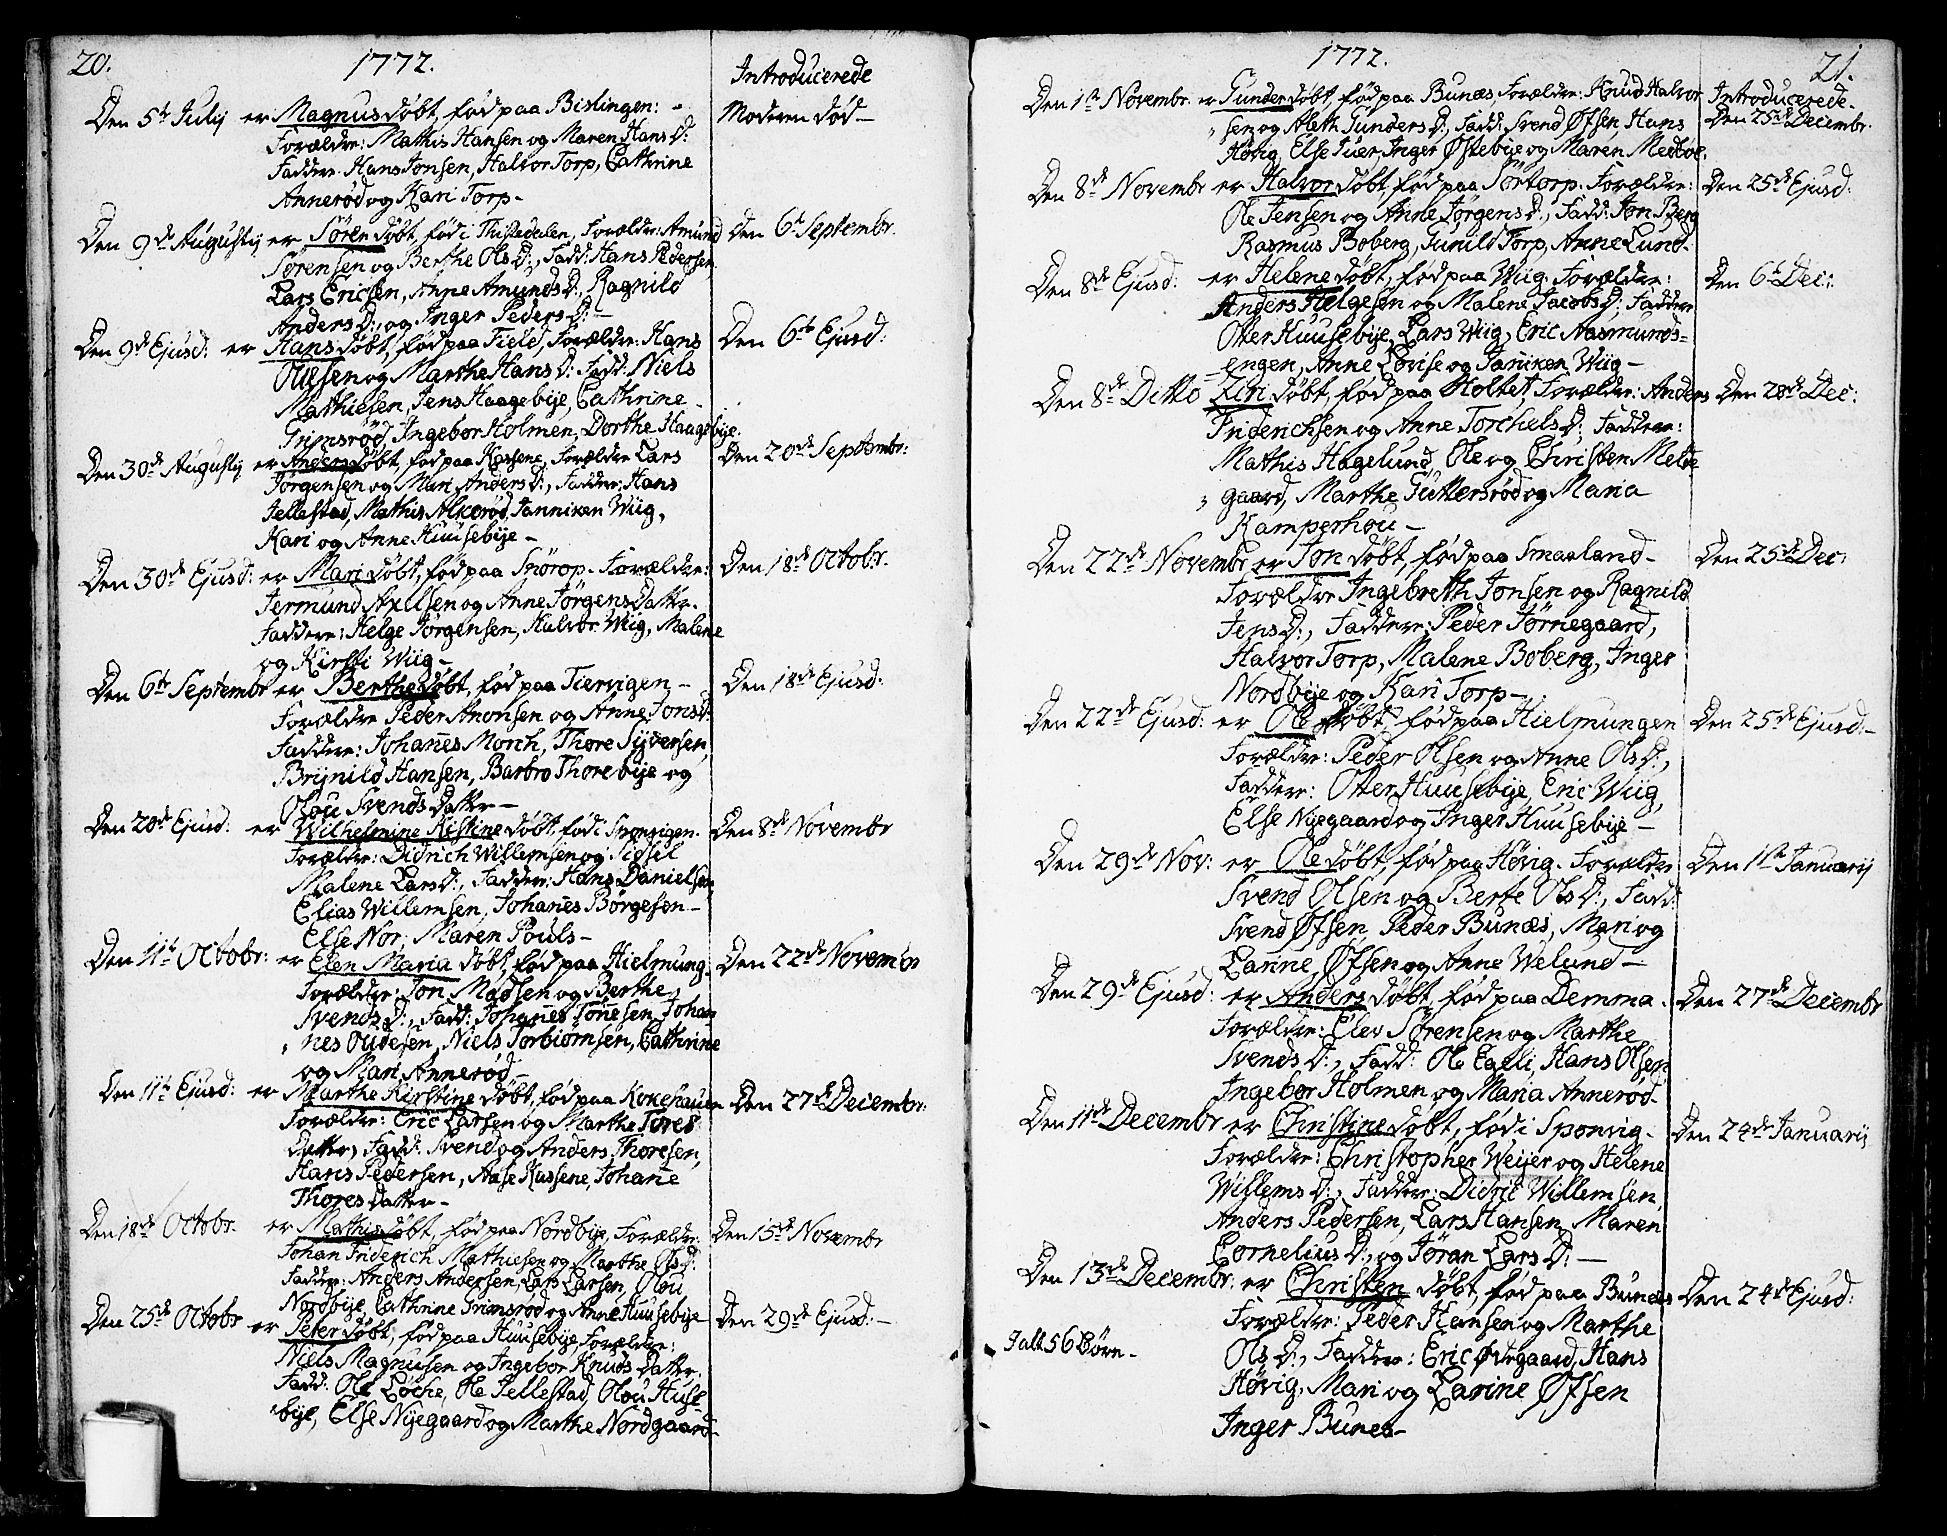 20. 1772.
Introducerede
Den 5t Julij er Magnus døbt, fød paa Bislingen: Moderen død—
Forældre: Mathis Hansen og Maren Hans D:
Faddere. Hans Jonsen, Halvor Torp, Cathrine
Annerød og Kari Torp.
Den 9de Augustij er Sören døbt, fød i Thistedalen, Forældre: Amund Den 6t Septembr.
Sørensen og Berthe Ols D:, Fadd: Hans Pedersen
Lars Ericsen, Anne Amunds D:, Ragnild
Anders D:, og Inger Peders D:—
Den 9de Ejusd: er Hans døbt, fød paa Field, Forældre: Hans Den 6t Ejusd:
Olsen og Marthe Hans D: Fadd: Niels
Mathiesen, Jens Haagebije, Cathrine
Grimsrød, Ingebor Holmen, Dorthe Haagebije.
Den 30de Augustij er Anders døbt, fød paa Kassene, Forældre Lars Den 20de Septembr:
Jørgensen og Mari Anders D:, Faddere; Hans
Jellestad, Mathis Alkerød, Janniken Wiig,
Kari og Anne Huusebije—
Den 30de Ejusd: er Mari døbt, fød paa Snörop. Forældre: Den 18de Octobr.
Jermund Axelsen og Anne Jørgens Dattr.
Faddere: Helge Jörgensen, Halvor Wiig, Malene
og Kirsti Wiig—
Den 6te Septembr er Berthe døbt, fød paa Tiervigen— Den 18de Ejusd:
Forældre Peder Anonsen og Anne Jons D:
Faddere: Johanes Morch, Thore Sijversen,
Brijnild Hansen, Barbro Thorebije og
Olou Svends Dattr—
Den 20de Ejusd: er Wilhelmine Kistine døbt, fød i Sponvigen. Den 8de Novembr
Forældre: Didrich Willemsen og Sidsel
Malene Lars D:, Faddere: Hans Danielsen,
Elias Willemsen, Johanes Börgesen—
Else Nor, Maren Pouls—
Den 11te Octobr: er Elen Maria döbt, fød paa Hielmung. Den 22de Novembr
Forældre: Jon Madsen og Berthe
Svends D:, Fadd: Johanes Tonesen, Johan
nes Oudesen, Niels Torbiørnsen, Cathrine
og Mari Annerød—
Den 11te Ejusd: er Marthe Kirstine døbt, fød paa Kokehauen Den 27de Decembr:
Forældre: Eric Larsen og Marthe Tores
Dattr, Fadd: Svend og Anders Thoresen,
Hans Pedersen, Aase Kassene, Johane
Thores Dattr—
Den 18de Octobr. er Mathis døbt, fød paa Nordbije, Forældre: Den 15de Novembr
Johan Friderich Mathiesen og Marthe Ols D:
Faddere: Anders Andersen, Lars Larsen, Olou
Nordbije, Cathrine Grimsrød og Anne Huusebije
Den 25de Octobr er Peter døbt, fød paa Huusebije, Forældre: Den 29de Ejusd:—
Niels Magnusen og Ingebor Knuds Dattr.
Fadd: Ole Löche, Ole Jellestad, Olou Huse
bije, Else Nijegaard og Marthe Nordgaard
1772. 21.
Den 1te Novembr. er Gunder døbt, fød paa Bunæs, Forældre: Knud Halvor Introducerede.
sen og Aleth Gunders D:, Fadd: Svend Øfsen, Hans Den 25de Decembr.
Høvig, Else Tuer, Inger Østebije og Maren Medbøe.
Den 8de Novembr er Halvor døbt, fød paa Sörtorp. Forældre: Den 25de Ejusd:
Ole Jensen og Anne Jørgens D:, Fadd: Jon Berg
Rasmus Boberg, Gunild Torp, Anne Lund.
Den 8de Ejusd: er Helene døbt, fød paa Wiig. Forældre: Den 6t Dec:
Anders Helgesen og Malene Jacobs D:, Faddere
Otter Huusebije, Lars Wiig, Eric Aasmunds=
=engen, Anne Lovise og Janniken Wiig—
Den 8de Ditto Siri døbt, fød paa Holtet. Forældre: Anders Den 28de Dec:
Friderichsen og Anne Torchels D:, Faddere:
Mathis Hagelund, Ole og Christen Melle
gaard, Marthe Guttersrød og Maria
Kamperhou—
Den 22de Novembr er Jon døbt, fød paa Smaaland— Den 25de Dec:
Forældre Ingebreth Jonsen og Ragnild
Jens D:, Faddere, Peder Tørnegaard,
Halvor Torp, Malene Boberg, Inger
Nordbije og Kari Torp—
Den 22de Ejusd: er Ole døbt, fød paa Hielmungen Den 25de Ejusd:—
Forældre: Peder Olsen og Anne Ols D:,
Faddere: Otter Huusebije, Eric Wiig,
Else Nijegaard og Inger Huusebije—
Den 29de Nov: er Ole døbt, fød paa Høvig. Forældre Den 1te Januarij
Svend Olsen og Berte Ols D:, Fadd:
Svend Øfsen, Peder Bunæs, Mari og
Larine Øfsen og Anne Welund—
Den 29de Ejusd: er Anders døbt, fød paa Demma. Den 27de Decembr
Forældre: Elev Sørensen og Marthe
Svends D:, Fadd: Ole Egeli, Hans Olsen
Ingebor Holmen og Maria Annerød.
Den 11te Decembr er Christine døbt, fød i Sponvig. Den 24de Januarij
Forældre: Christopher Weijer og Helene
Willems D:, Faddere: Didric Willemsen,
Anders Pedersen, Lars Hansen, Maren
Cornelius D:, og Jøran Lars D:—
Den 13de Decembr: er Christen døbt, fød paa Bunæs Den 24de Ejusd:
Forældre: Peder Hansen og Marthe
Ols D:, Faddere: Eric Ødegaard, Hans
Høvig, Mari og Larine Øfsen
Inger Bunes—
I alt 56 Börn—